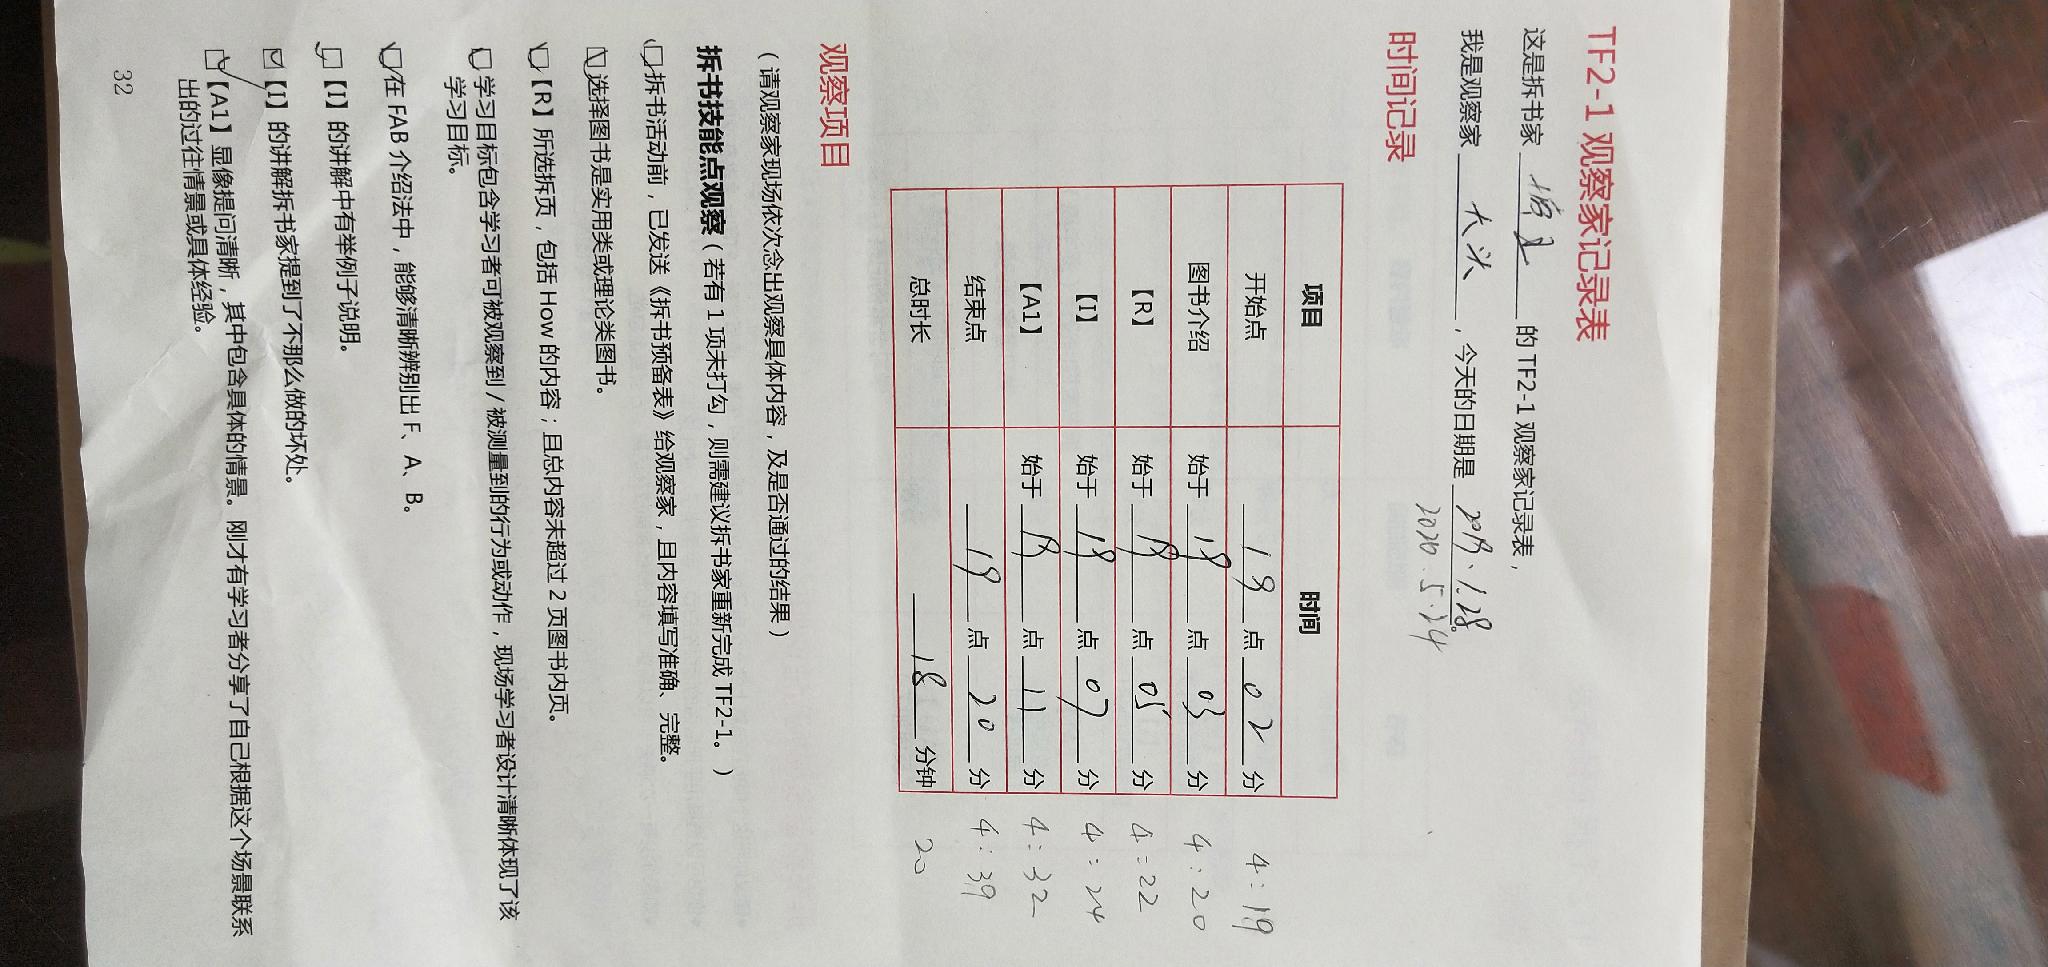 TF2-1 观察家记录表
这是拆书家 的 TF2-1 观察家记录表，
我是观察家 大头 ，今天的日期是 2019.1.28。
2020.5.24
时间记录
项目 时间
开始点 19 点 02 分 4:19
图书介绍 始于 19 点 03 分 4:20
【R】 始于 19 点 05 分 4:22
【I】 始于 19 点 07 分 4:24
【A1】 始于 19 点 11 分 4:32
结束点 19 点 20 分 4:39
总时长 18 分钟 20
观察项目
（请观察家现场依次念出观察具体内容，及是否通过的结果）
拆书技能点观察（若有 1 项未打勾，则需建议拆书家重新完成 TF2-1。）
拆书活动前，已发送《拆书预备表》给观察家，且内容填写准确、完整。
选择图书是实用类或理论类图书。
【R】所选拆页，包括 How 的内容；且总内容未超过 2 页图书内页。
学习目标包含学习者可被观察到 / 被测量到的行为或动作，现场学习者设计清晰体现了该
学习目标。
在 FAB 介绍法中，能够清晰辨别出 F、A、B。
【I】的讲解中有举例子说明。
【I】的讲解拆书家提到了不那么做的坏处。
【A1】显像提问清晰，其中包含具体的情景。刚才有学习者分享了自己根据这个场景联系
出的过往情景或具体经验。
32